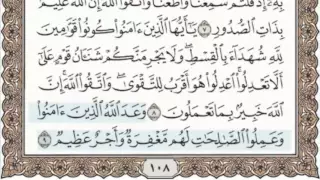 بِهِۦٓ إِذْ قُلْتُمْ سَمِعْنَا وَأَطَعْنَا وَٱتَّقُوا۟ ٱللَّهَ إِنَّ ٱللَّهَ عَلِيمٌۢ
بِذَاتِ ٱلصُّدُورِ ٧ يَـٰٓأَيُّهَا ٱلَّذِينَ ءَامَنُوا۟ كُونُوا۟ قَوَّٰمِينَ
لِلَّهِ شُهَدَآءَ بِٱلْقِسْطِ وَلَا يَجْرِمَنَّكُمْ شَنَـَٔانُ قَوْمٍ عَلَىٰٓ
أَلَّا تَعْدِلُوا۟ ٱعْدِلُوا۟ هُوَ أَقْرَبُ لِلتَّقْوَىٰ وَٱتَّقُوا۟ ٱللَّهَ إِنَّ
ٱللَّهَ خَبِيرٌۢ بِمَا تَعْمَلُونَ ٨ وَعَدَ ٱللَّهُ ٱلَّذِينَ ءَامَنُوا۟
وَعَمِلُوا۟ ٱلصَّـٰلِحَـٰتِ لَهُم مَّغْفِرَةٌ وَأَجْرٌ عَظِيمٌ ٩
١٠٨